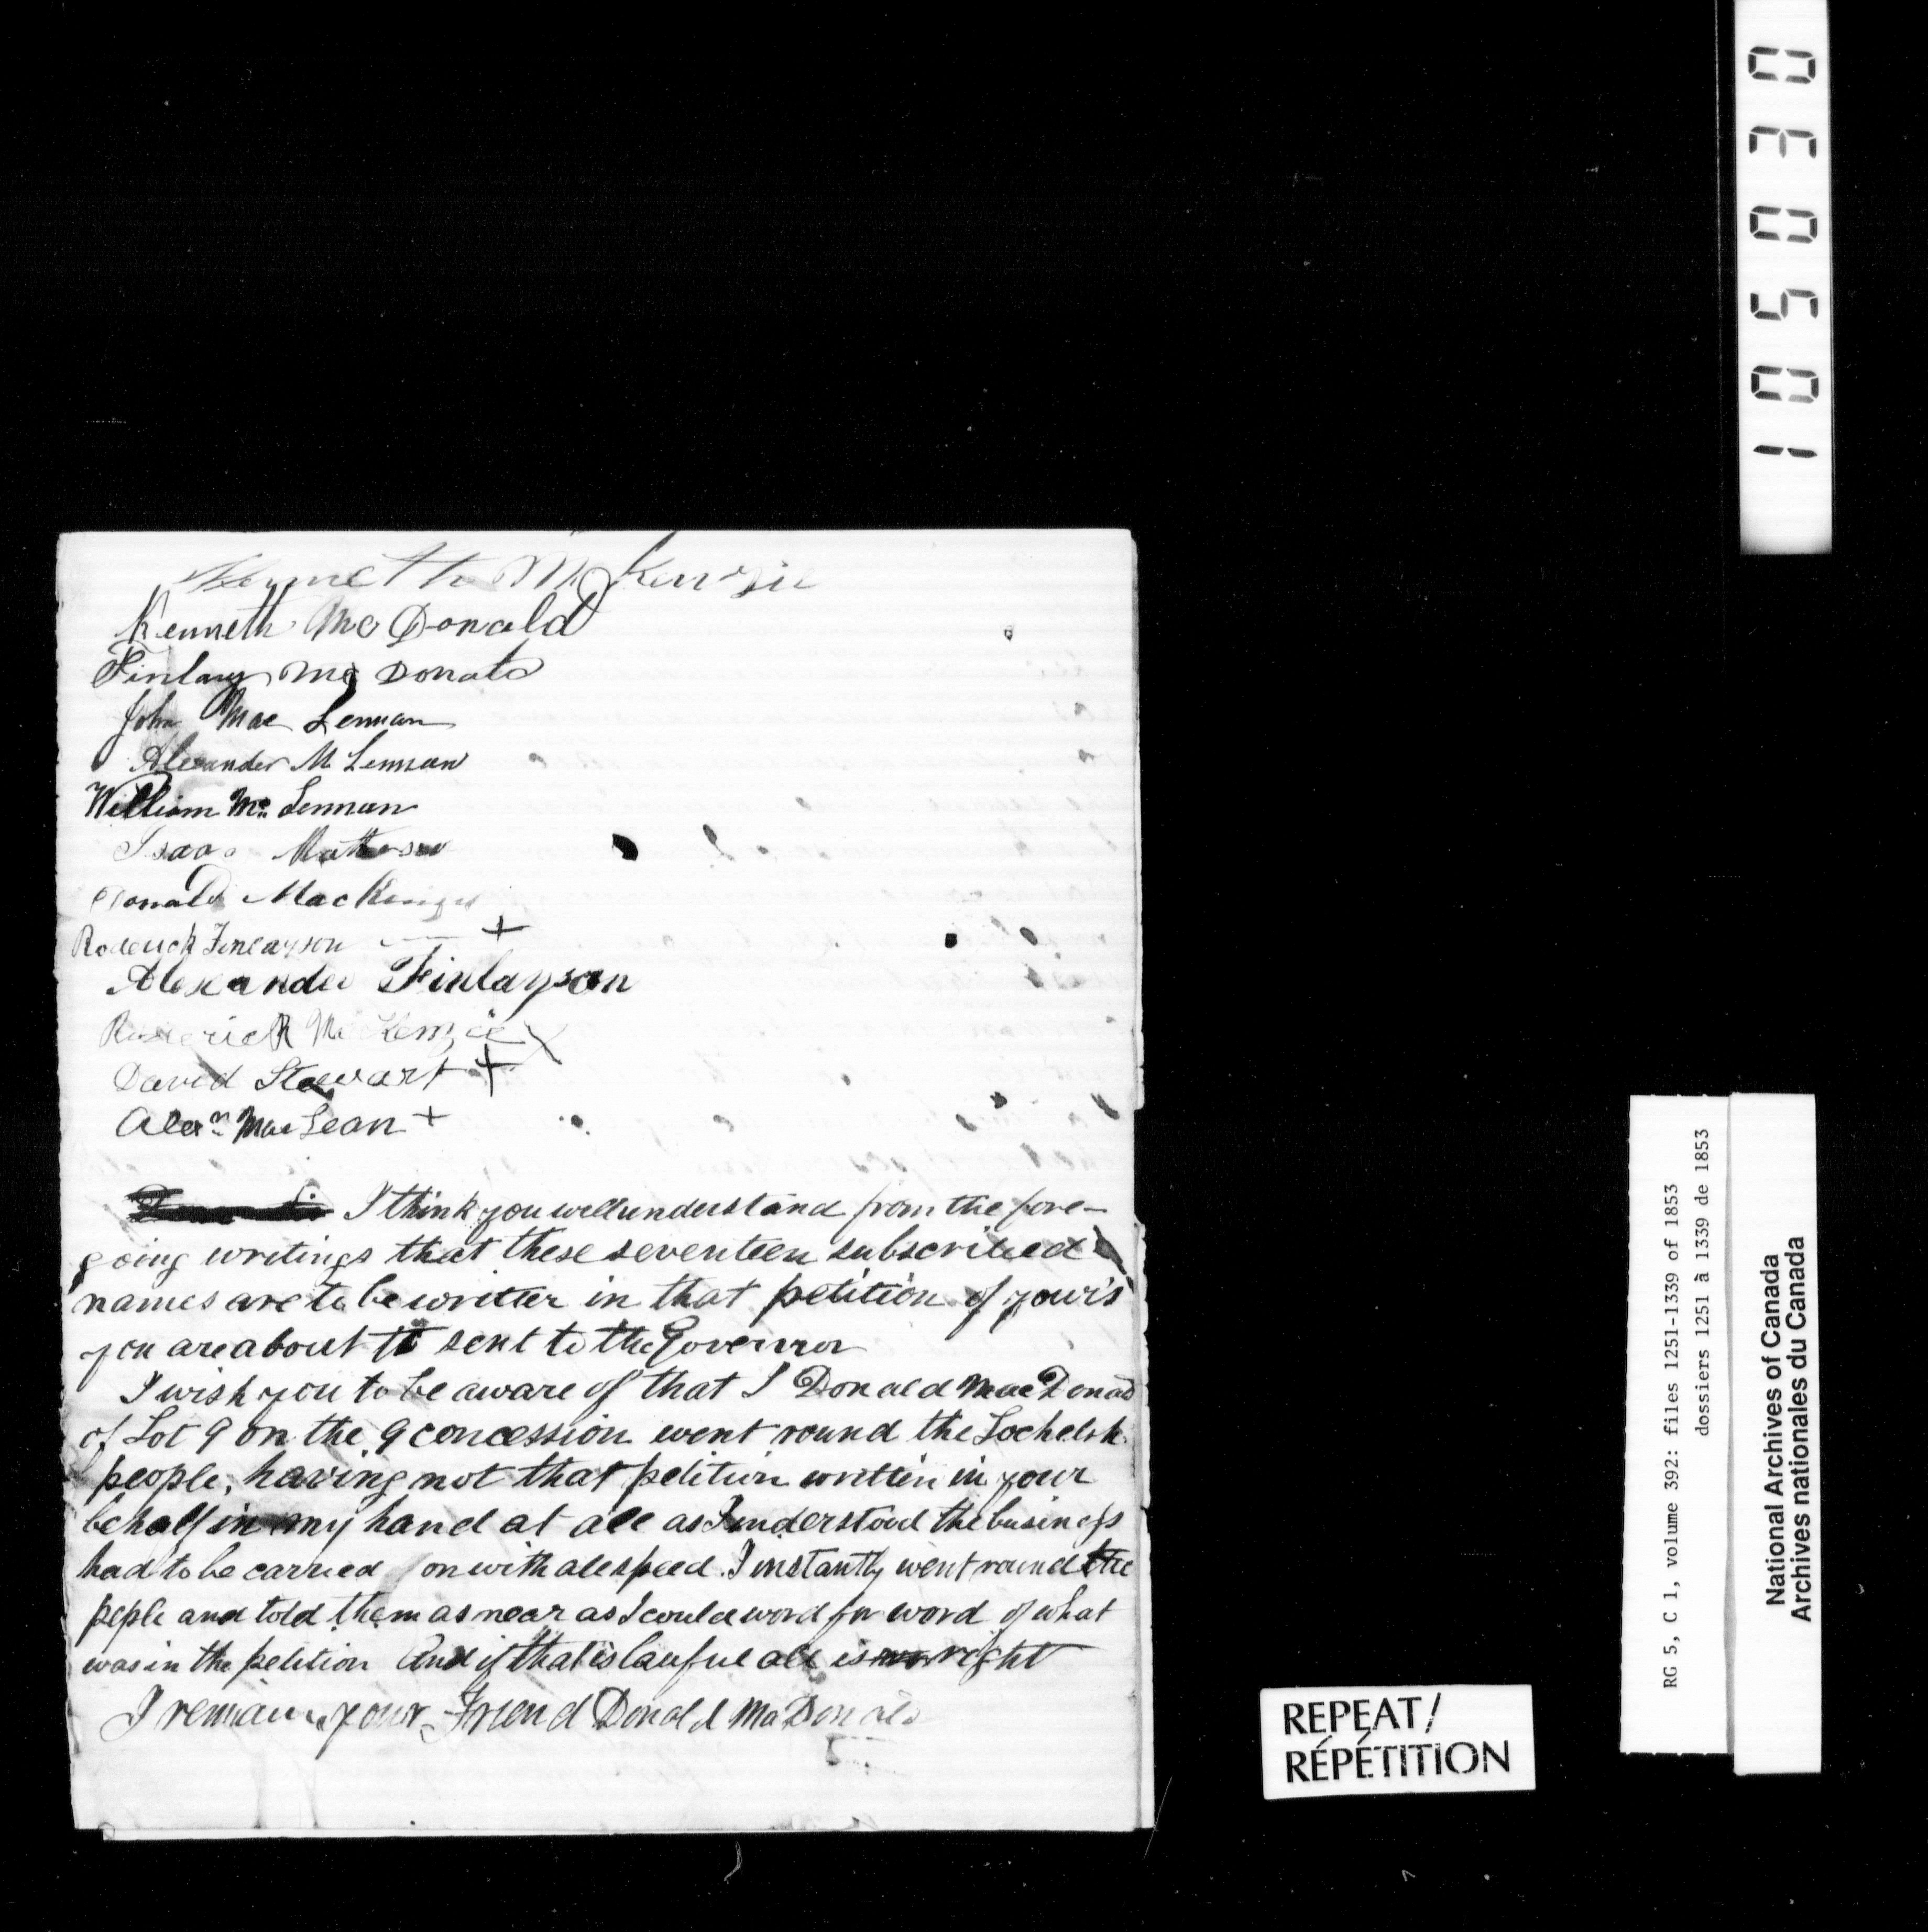 Kenneth McKenzie
Kenneth McDonald
Finlay Mc Donald
John Mac Lennan
Alexander M Lennan
William Mc Lennan
Isaac Matheson
Donald MacKenzie
Roderick Finlayson — +
Alexander Finlayson
Roderick Mc Kenzie X
David Stewart +
Alexr MacLean +
I think you will understand from the fore-
going writings that these seventeen subscribed
names are to be writter in that petition of your's
you are about to sent to the Governor
I wish you to be aware of that I Donald MacDonald
of Lot 9 on the 9 concession went round the Lochelsh
people, having not that petition written in your
behalf in my hand at all as I understood the business
had to be carried on with all speed. I instantly went round the
peple and told them as near as I could word for word of what
was in the petition And if that is lawful all is right
I remain your Friend Donald MaDonald
105030
RG 5, C 1, volume 392: files 1251-1339 of 1853
dossiers 1251 à 1339 de 1853
National Archives of Canada
Archives nationales du Canada
REPEAT/
RÉPÉTITION